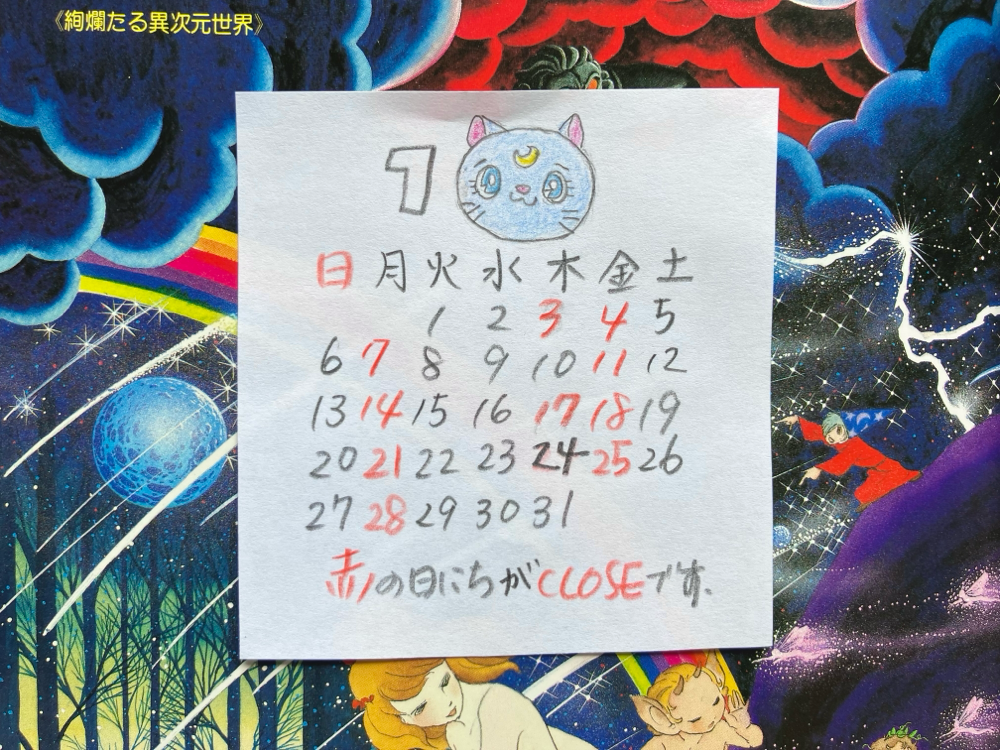 《絢爛たる異次元世界》
7
日 月 火 水 木 金 土
1 2 3 4 5
6 7 8 9 10 11 12
13 14 15 16 17 18 19
20 21 22 23 24 25 26
27 28 29 30 31
赤の日にちがCLOSEです.